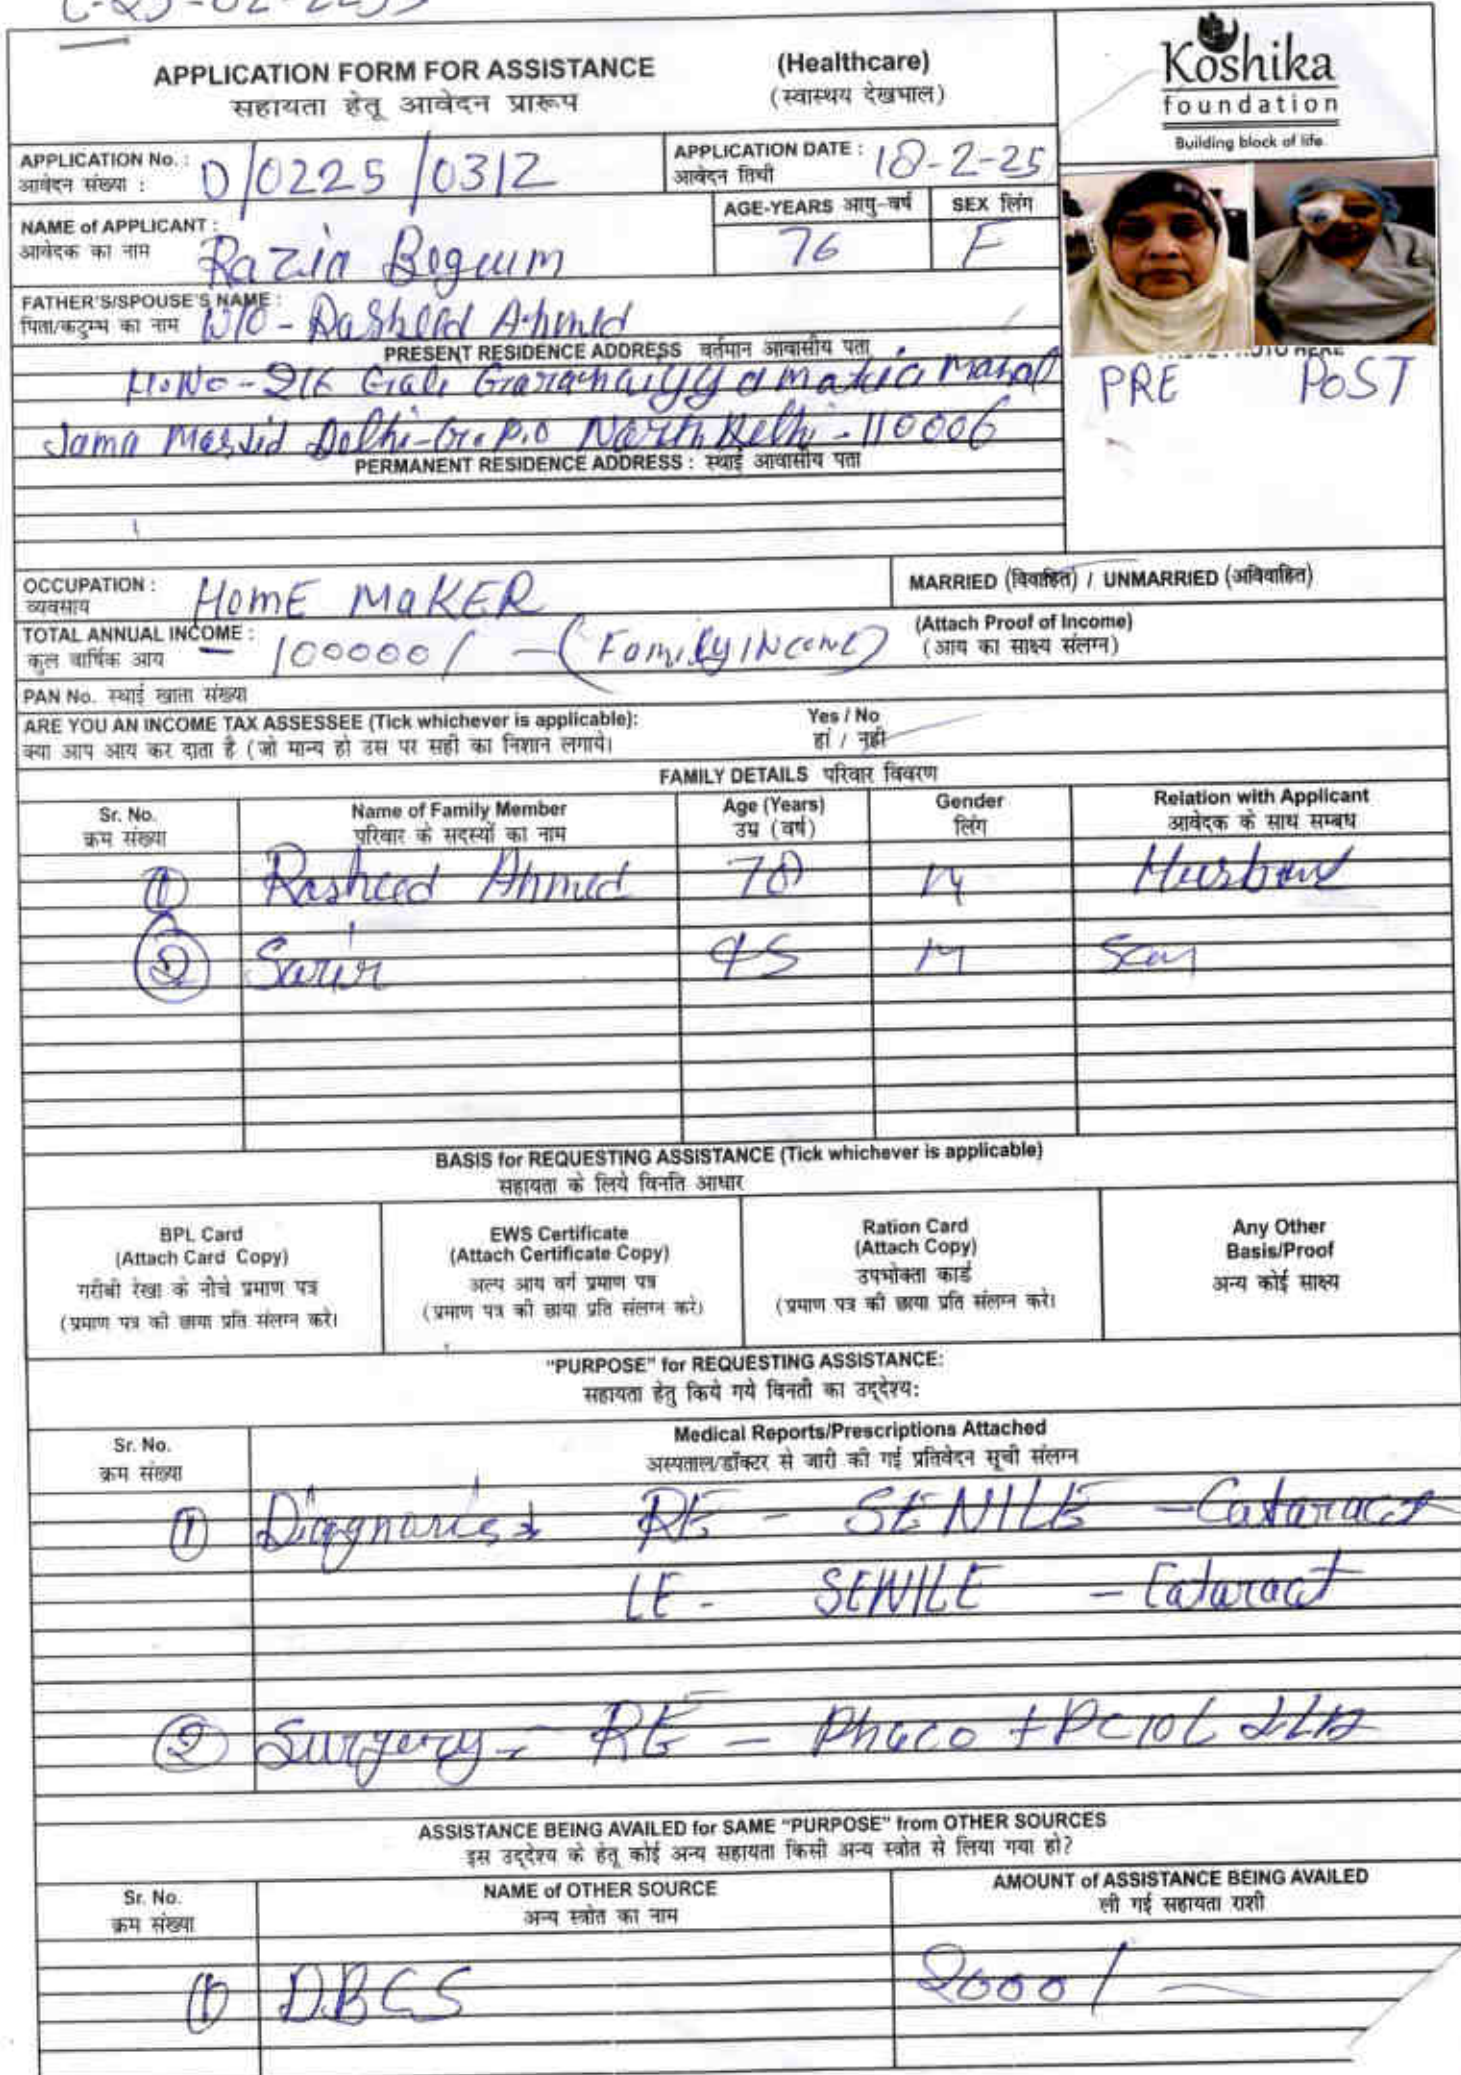 APPLICATION FORM FOR ASSISTANCE (Healthcare)
सहायता हेतू आवेदन प्रारूप (स्वास्थय देखभाल)
Koshika
foundation
Building block of life
APPLICATION No. : D/0225/0312
आवेदन संख्या :
APPLICATION DATE : 18-2-25
आवेदन तिथी
NAME of APPLICANT : Razia Begum
आवेदक का नाम
AGE-YEARS आयु-वर्ष 76
SEX लिंग F
FATHER'S/SPOUSE'S NAME : W/O - Rasheed Ahmed
पिता/कटुम्ब का नाम
PRESENT RESIDENCE ADDRESS वर्तमान आवासीय पता
H.No - Gali Matia Mahal
Jama Masjid Delhi-G.P.O North Delhi - 110006
PRE POST
PERMANENT RESIDENCE ADDRESS : स्थाई आवासीय पता
OCCUPATION : HomE MaKER
व्यवसाय
MARRIED (विवाहित) / UNMARRIED (अविवाहित)
TOTAL ANNUAL INCOME : 100000/- (Family INCOME)
कुल वार्षिक आय
(Attach Proof of Income)
(आय का साक्ष्य संलग्न)
PAN No. स्थाई खाता संख्या
ARE YOU AN INCOME TAX ASSESSEE (Tick whichever is applicable): Yes / No
क्या आप आय कर दाता है (जो मान्य हो उस पर सही का निशान लगाये। हां / नही
FAMILY DETAILS परिवार विवरण
Sr. No. Name of Family Member Age (Years) Gender Relation with Applicant
क्रम संख्या परिवार के सदस्यों का नाम उम्र (वर्ष) लिंग आवेदक के साथ सम्बध
1 Rasheed Ahmed 78 M Husband
2 45 M Son
BASIS for REQUESTING ASSISTANCE (Tick whichever is applicable)
सहायता के लिये विनति आधार
BPL Card
(Attach Card Copy)
गरीबी रेखा के नीचे प्रमाण पत्र
(प्रमाण पत्र की छाया प्रति संलग्न करे।
EWS Certificate
(Attach Certificate Copy)
अल्प आय वर्ग प्रमाण पत्र
(प्रमाण पत्र की छाया प्रति संलग्न करे।
Ration Card
(Attach Copy)
उपभोक्ता कार्ड
(प्रमाण पत्र की छाया प्रति संलग्न करे।
Any Other
Basis/Proof
अन्य कोई साक्ष्य
"PURPOSE" for REQUESTING ASSISTANCE:
सहायता हेतु किये गये विनती का उद्देश्य:
Sr. No. Medical Reports/Prescriptions Attached
क्रम संख्या अस्पताल/डॉक्टर से जारी की गई प्रतिवेदन सूची संलग्न
1 Diagnosis RE - SENILE - Cataract
LE - SENILE - Cataract
2 Surgery - RE - Phaco + PCIOL
ASSISTANCE BEING AVAILED for SAME "PURPOSE" from OTHER SOURCES
इस उद्देश्य के हेतू कोई अन्य सहायता किसी अन्य स्त्रोत से लिया गया हो?
Sr. No. NAME of OTHER SOURCE AMOUNT of ASSISTANCE BEING AVAILED
क्रम संख्या अन्य स्त्रोत का नाम ली गई सहायता राशी
1 DBCS 2000/-